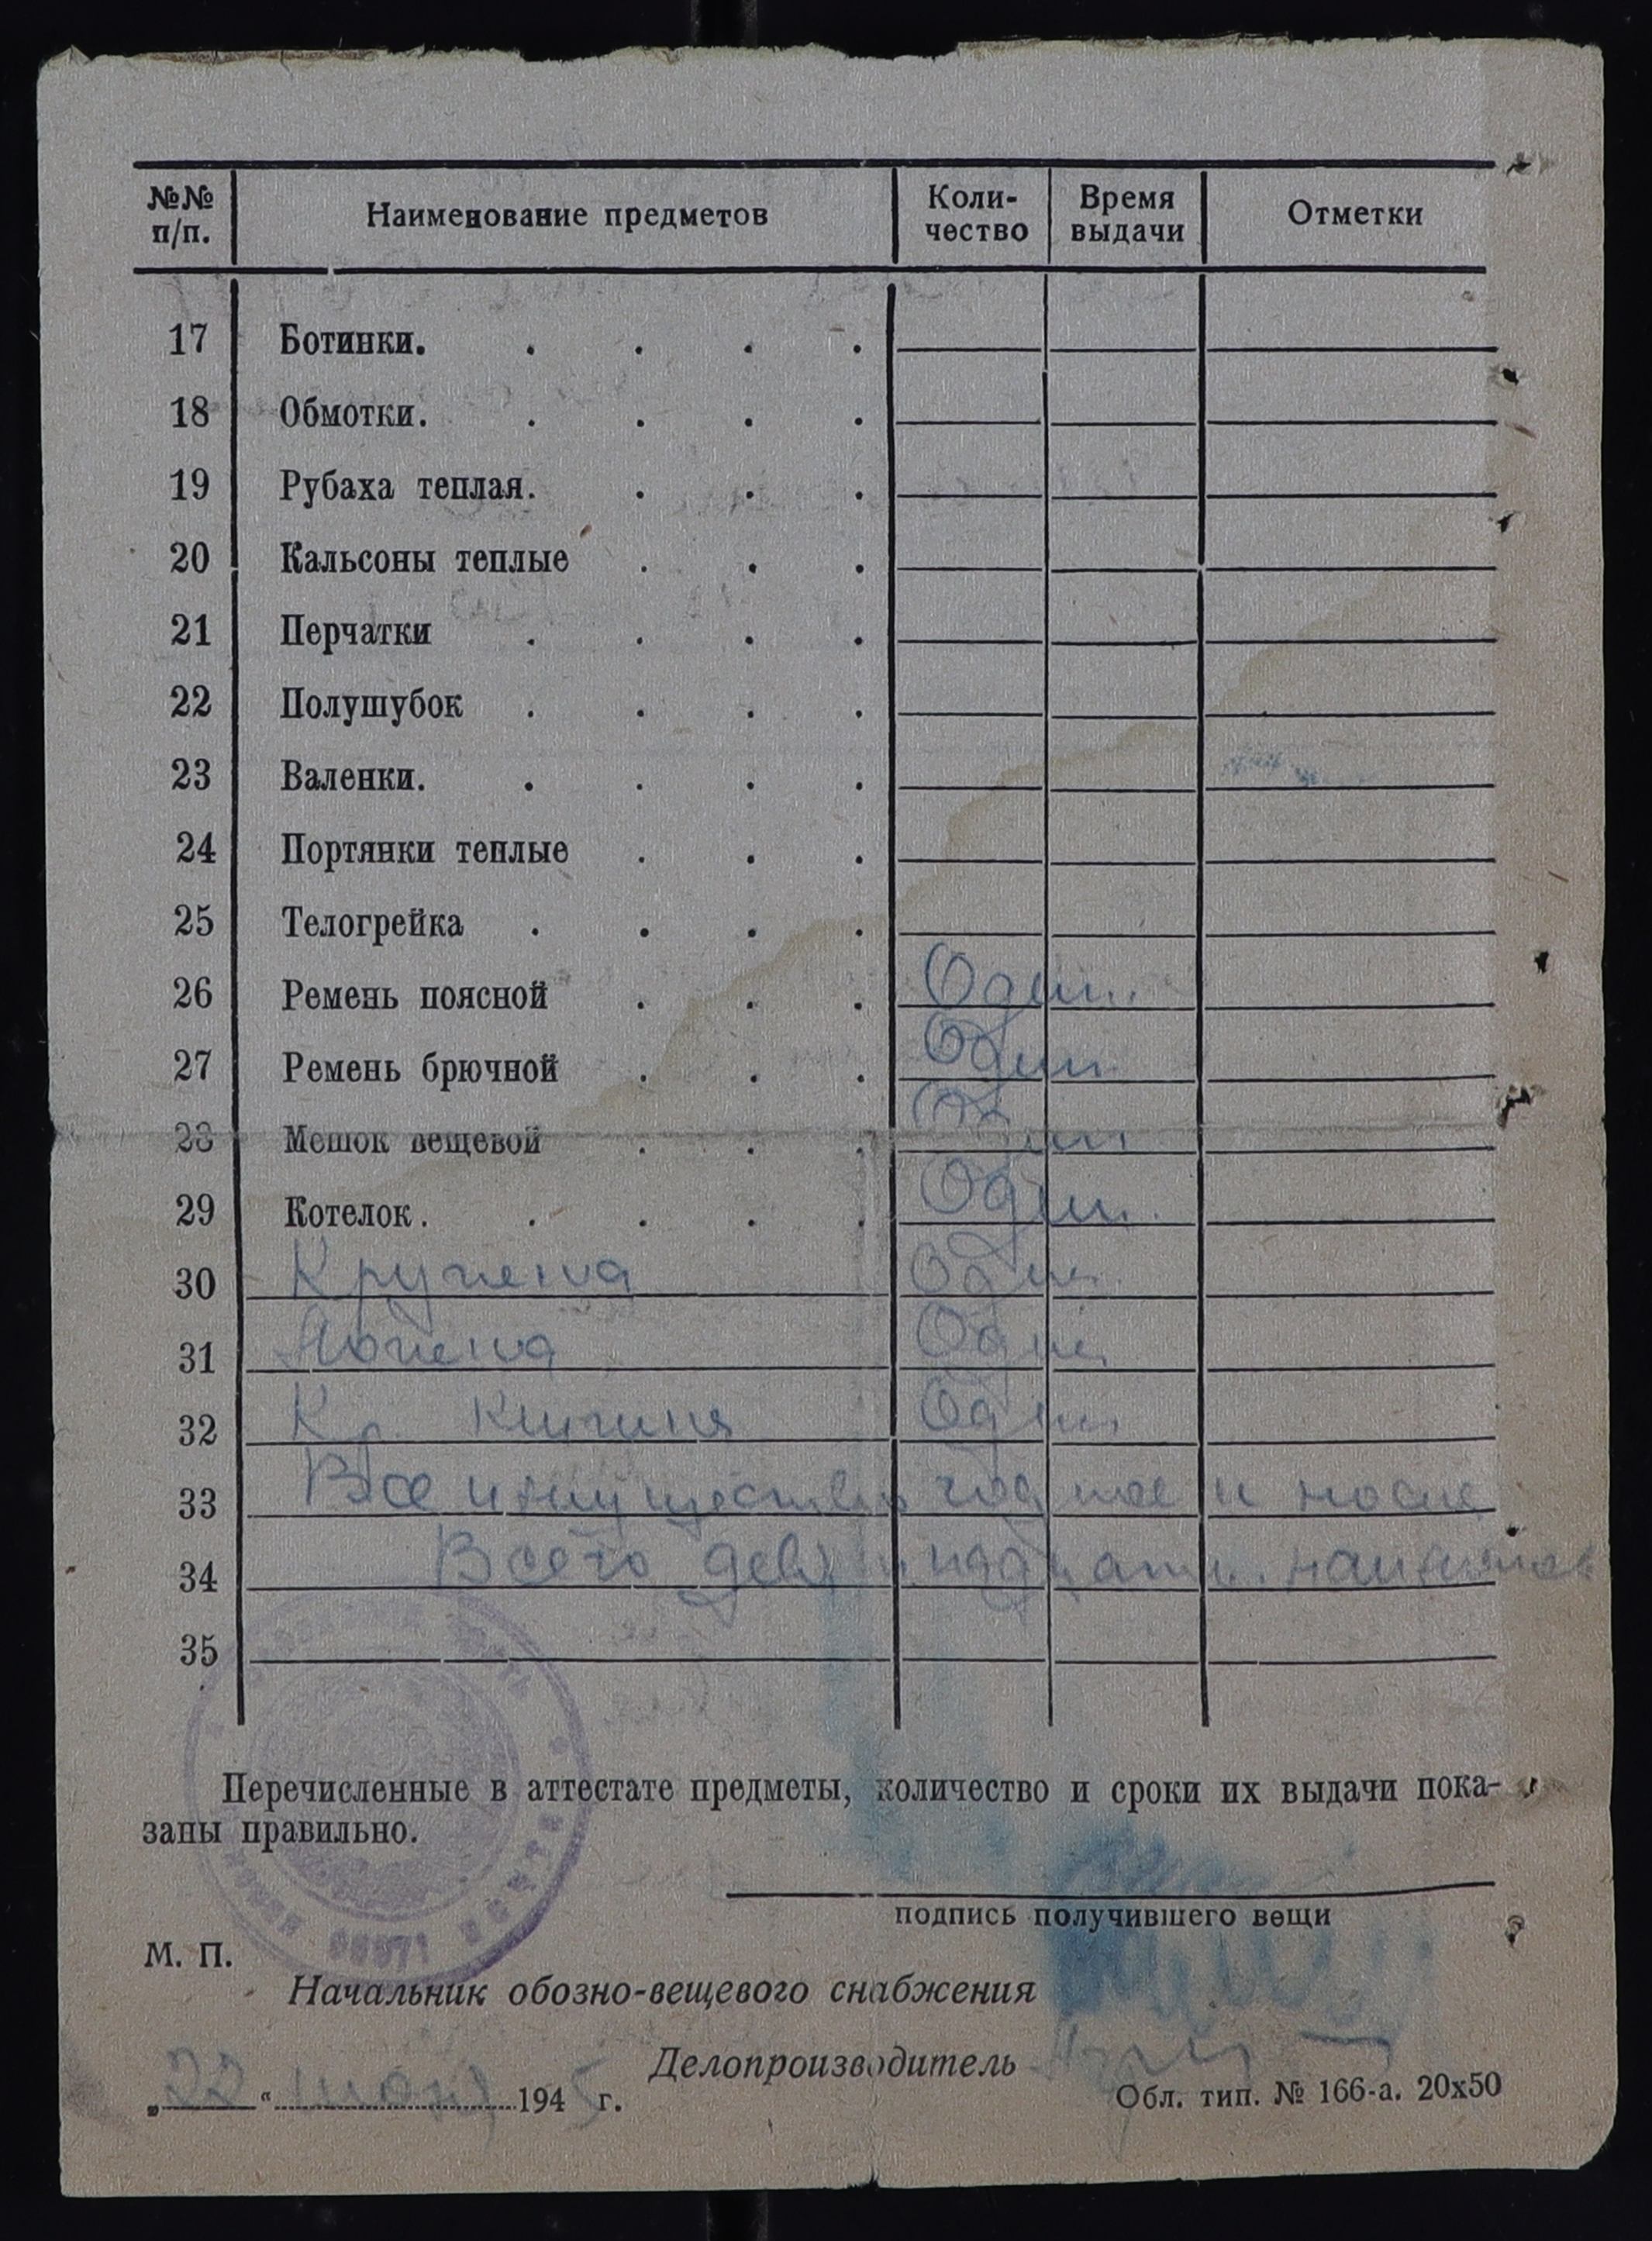 №№ п/п. Наименование предметов Коли-чество Время выдачи Отметки
17 Ботинки. . . . .
18 Обмотки. . . . .
19 Рубаха теплая. . . .
20 Кальсоны теплые . . .
21 Перчатки . . . .
22 Полушубок . . . .
23 Валенки. . . . .
24 Портянки теплые . . .
25 Телогрейка . . . .
26 Ремень поясной . . . Один.
27 Ремень брючной . . . Один
28 Мешок вещевой . . . Один
29 Котелок. . . . . Один.
30 Один
31 Один
32 Кр. книжка Один
33 Все имущество годное к носке
34 Всего девятнадцать
35
Перечисленные в аттестате предметы, количество и сроки их выдачи пока-
заны правильно.
подпись получившего вещи
М. П.
Начальник обозно-вещевого снабжения
Делопроизводитель
„22“ 1945 г.
Обл. тип. № 166-а. 20х50